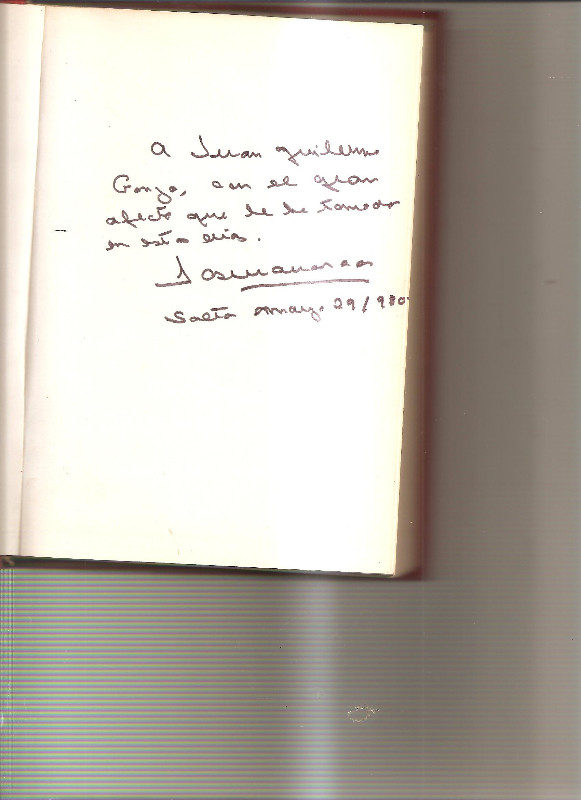 A Juan Guillermo
Gonza, con el gran
afecto que le he tomado
en estos días.
Salta mayo 29/980